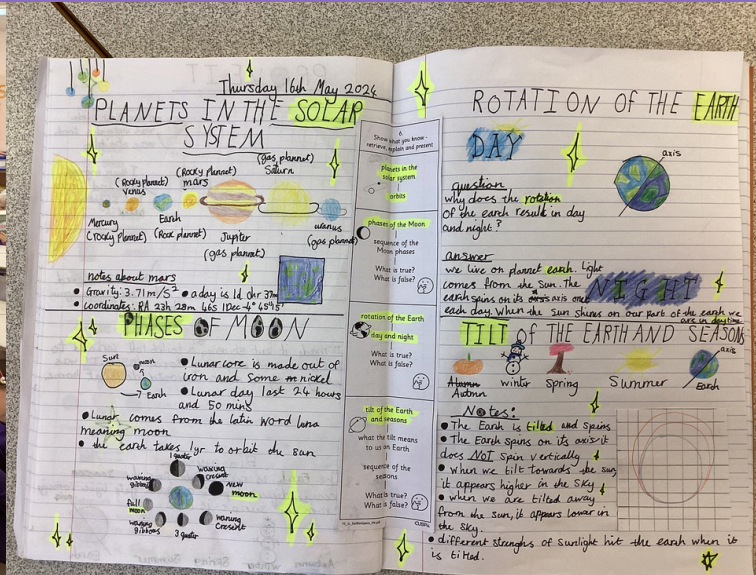 Thursday 16th May 2024
PLANETS IN THE SOLAR
SYSTEM
(Rocky plannet)
Venus
(Rocky plannet)
mars
(gas plannet)
Saturn
Mercury
(rocky plannet)
Earth
(Rock plannet)
Jupiter
(gas plannet)
uranus
(gas plannet)
notes about mars
• Gravity: 3.71m/s² • a day is 1d 0hr 37m
• coordinates: RA 23h 28m 46s | Dec -4°
PHASES OF MOON
Sun
moon
Earth
• Lunar core is made out of
iron and some nickel
• Lunar day last 24 hours
and 50 mins
• Lunar comes from the latin word luna
meaning moon
• the earth takes 1yr to orbit the sun
1 quater
waxing
cresent
New
moon
waning
Cresent
3 quater
waning
gibbous
full
moon
gibbous
6.
Show what you know -
retrieve, explain and present
planets in the
solar system
orbits
phases of the Moon
sequence of the
Moon phases
What is true?
What is false?
rotation of the Earth
day and night
What is true?
What is false?
tilt of the Earth
and seasons
what the tilt means
to us on Earth
sequence of the
seasons
What is true?
What is false?
ROTATION OF THE EARTH
DAY
axis
question
why does the rotation
of the earth result in day
and night?
answer
we live on plannet earth. Light
comes from the Sun. The
earth spins on its axis once
each day. When the Sun shines on our part of the earth we
are in daytime
NIGHT
TILT of THE EARTH AND SEASONS
Autumn
Automn
winter
Spring
Summer
axis
Earth
Notes:
• The Earth is tilted and spins
• The Earth spins on its axis it
does NOT spin vertically
• when we tilt towards the sun,
it appears higher in the sky
• when we are tilted away
from the sun, it appears lower in
the sky.
• different strenghs of sunlight hit the earth when it
is tilted.